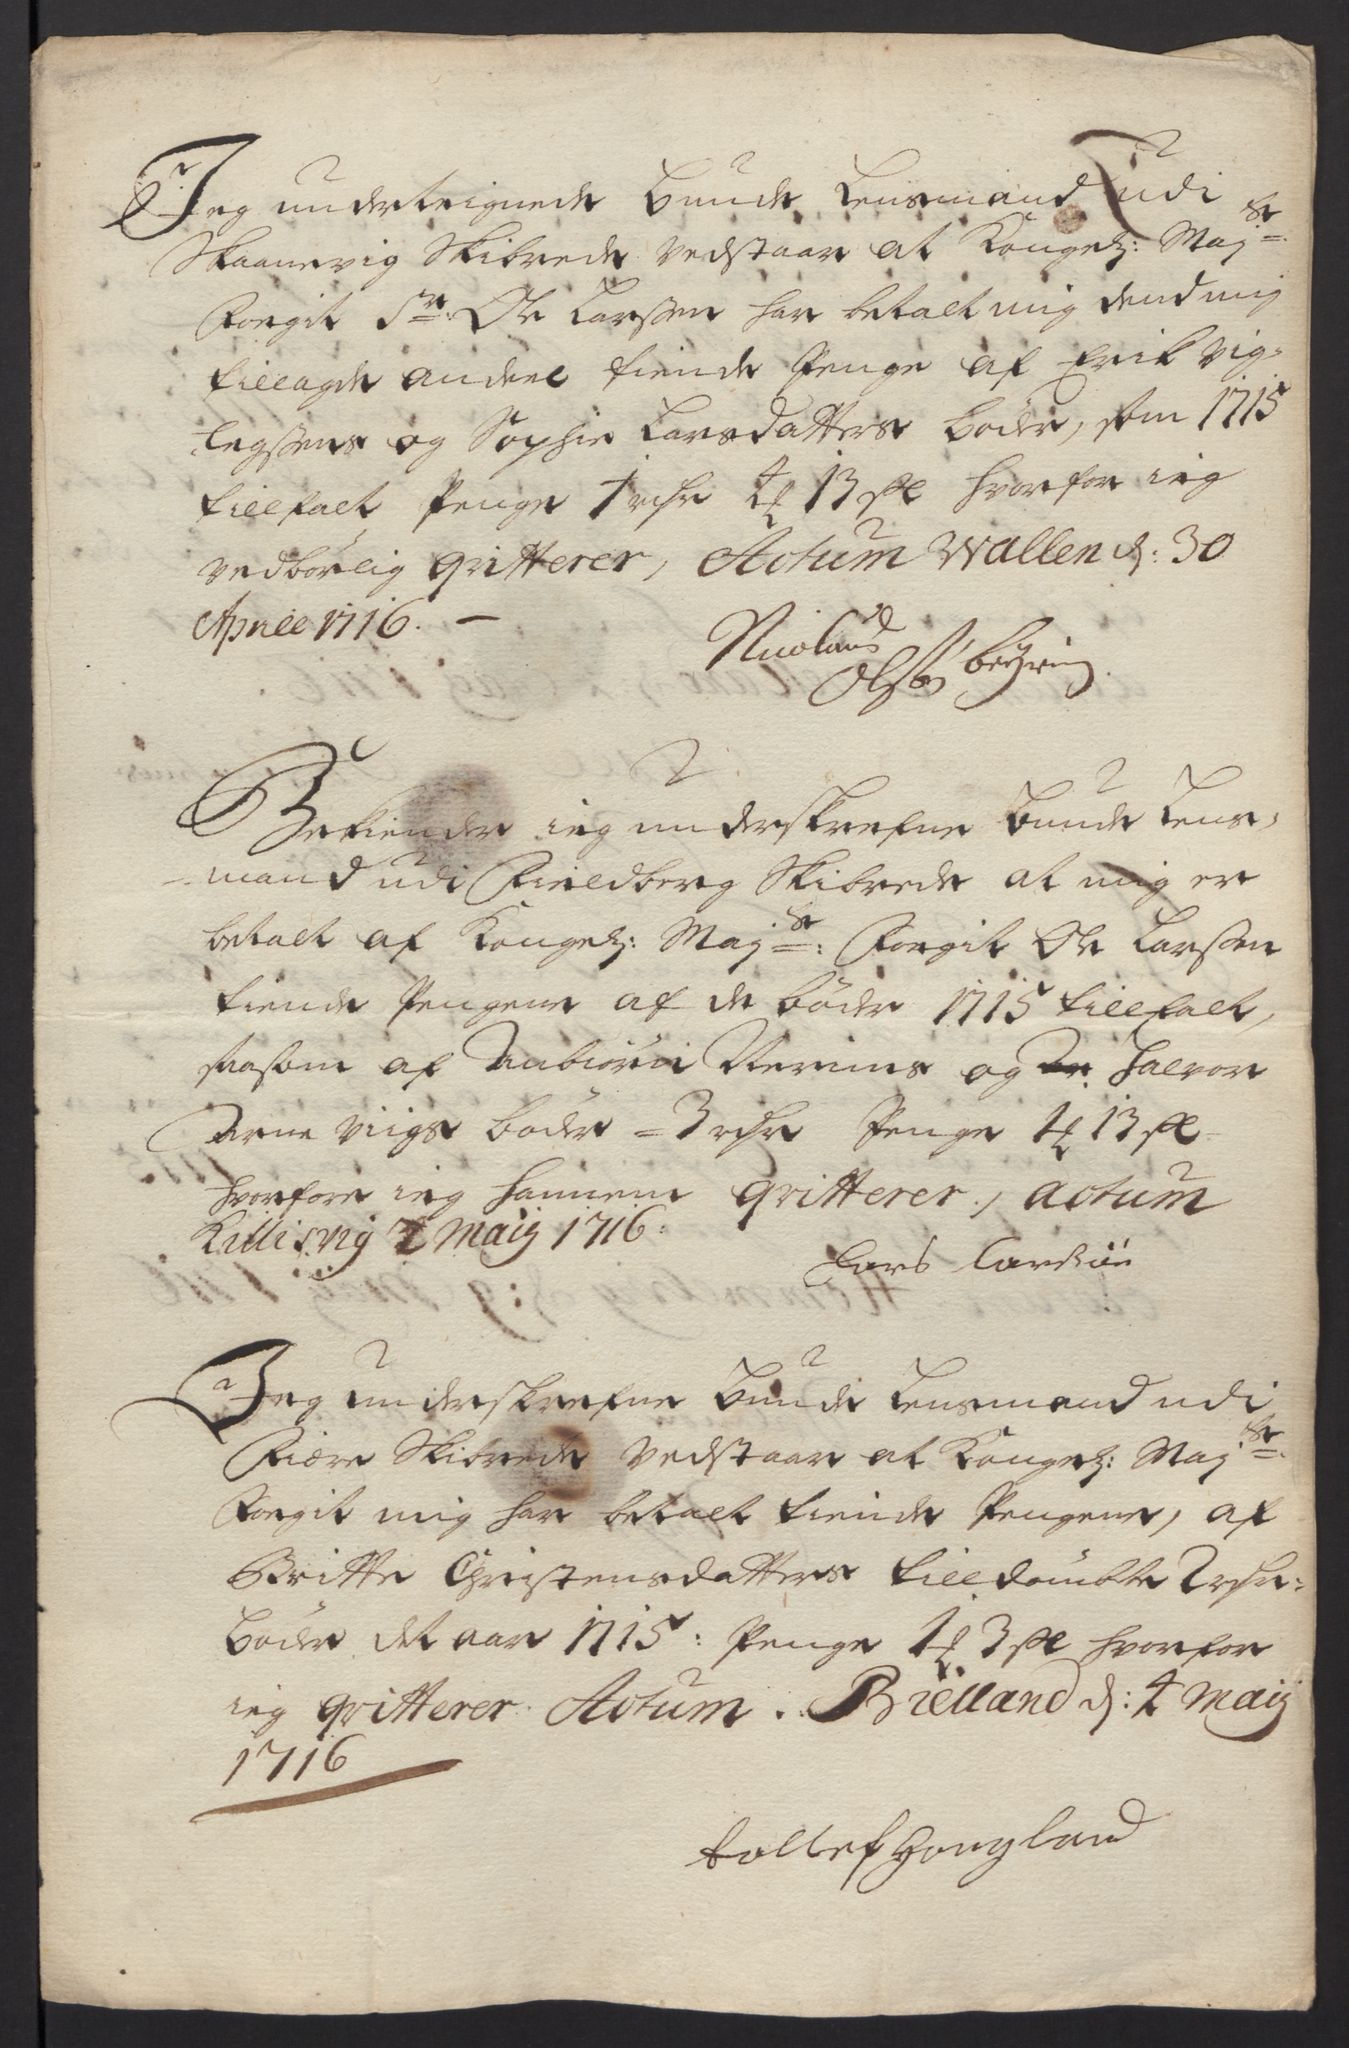 Jeg underteignede bunde Lensmand udi
Skaanevig Skibrede vedstaar at Kongel: Maj^st:
Foegit Sr: Ole Larssen har betalt mig dend mig
tillagde andeel tiende Penge af Erik Vig-
legssens og Sophie Larsdatters bøder, som 1715
tillfalt Penge 1 rdr 4 ₰ 13 sk hvorfor ieg
vedbørlig qvitterer, Actum Wallen d: 30
Aprill 1716. —
Nicolaus
Olss
Bekiender ieg underskrefne bunde Lens-
mand udi Fieldberg Skibrede at mig er
betalt af Kongel: Maj^st: Foegit Ole Larssen
tiende Pengene af de bøder 1715 tillfalt,
saasom af og Halvor
Arne Viigs bøder = 3 rdr Penge 1 ₰ 13 sk
hvorfore ieg hannem qvitterer, actum
7 Maij 1716.
Lars
Jeg underskrefne bunde Lensmand udi
Fiære Skibrede vedstaar at Kongel: Maj^st:
Foegit mig har betalt tiende Pengene, af
Britte Christensdatters tilldømbte 2 rdr:
bøder det aar 1715: Penge 1 ₰ 3 sk hvorfor
ieg qvitterer. Actum. Brelland d: 4 Maij
1716
tollef Hougland